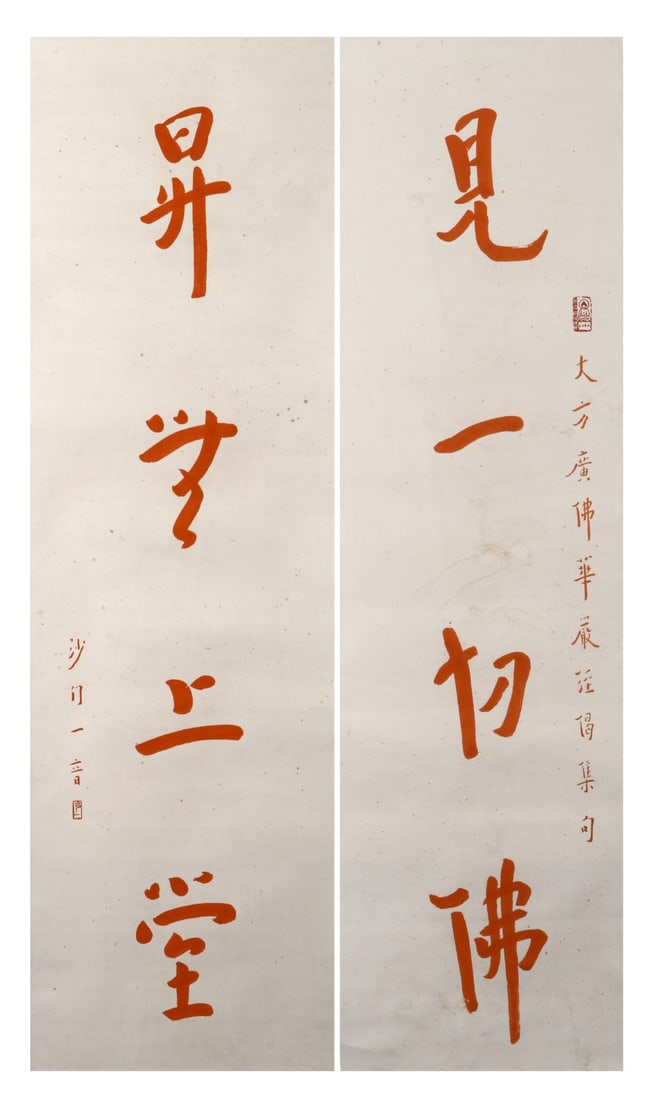 見一切佛
大方廣佛華嚴經偈集句
昇無上堂
沙門一音